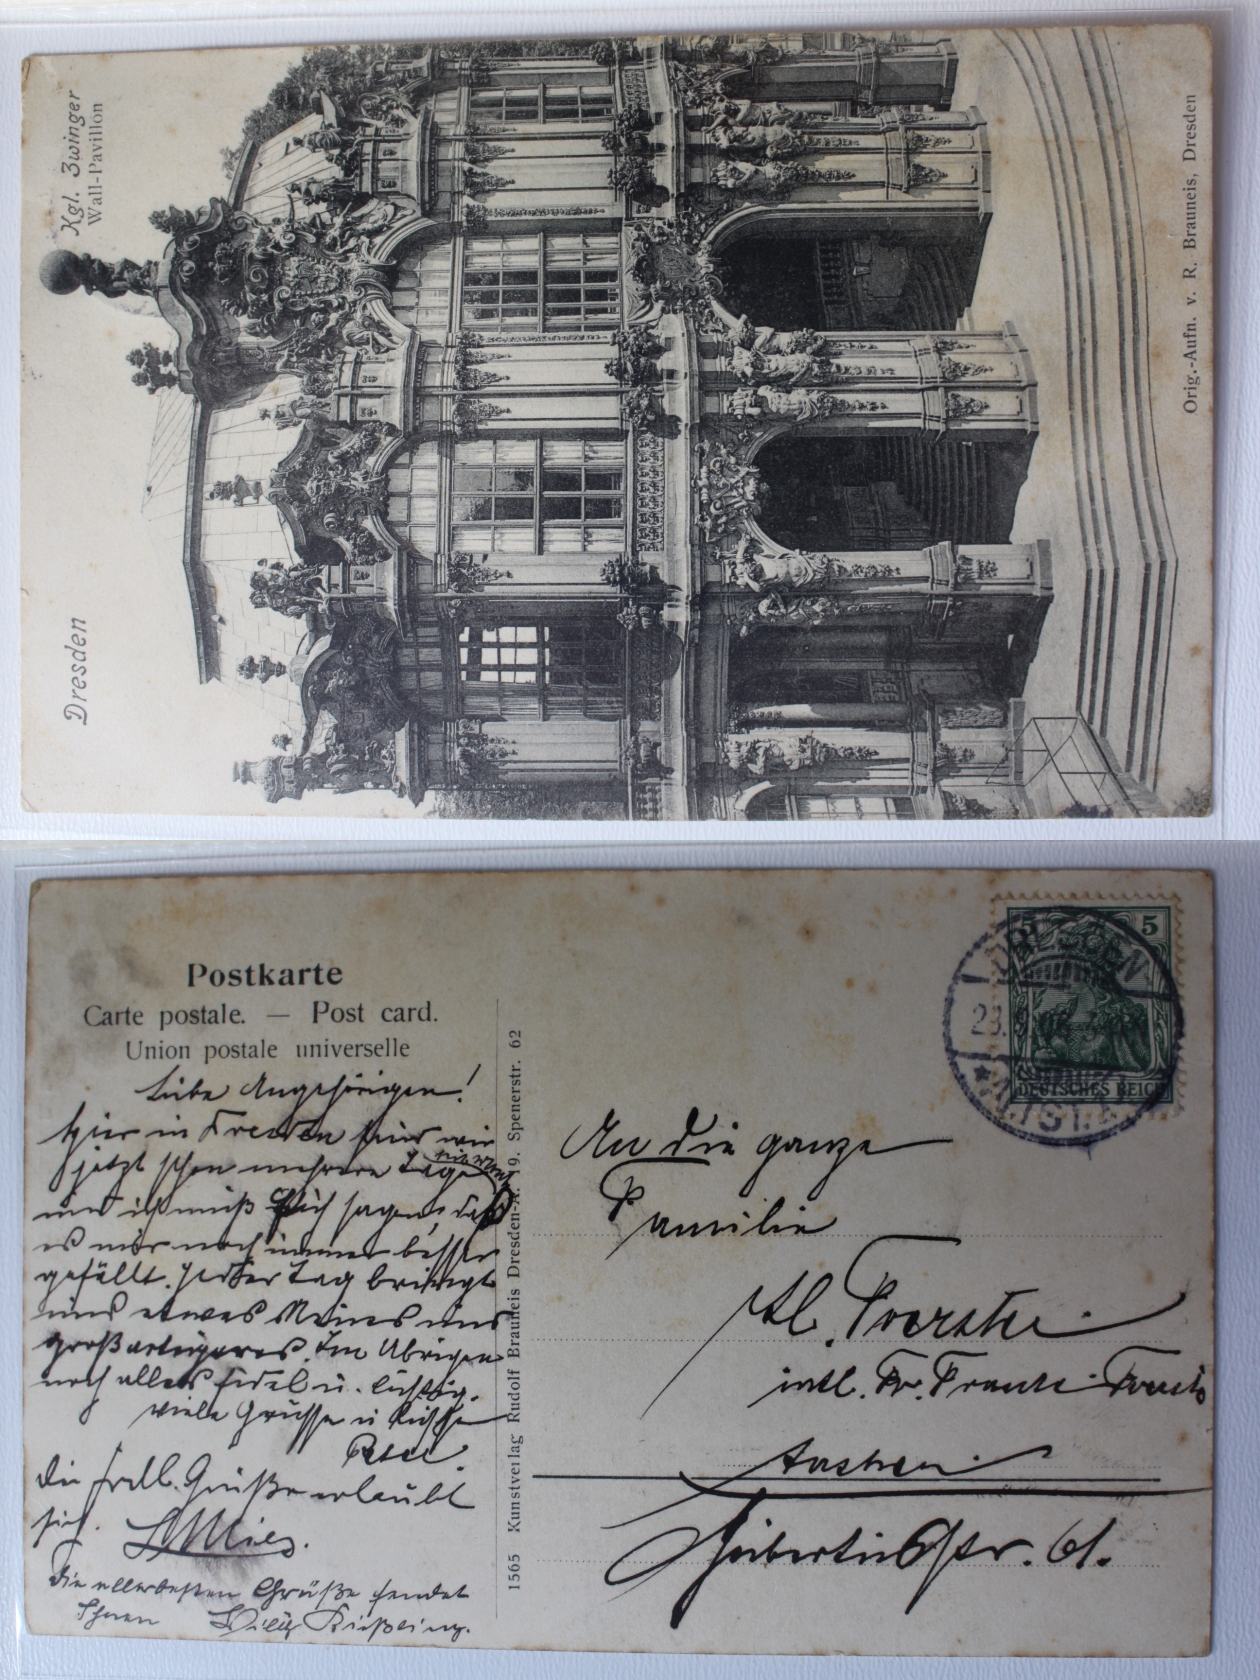 Dresden
Kgl. Zwinger
Wall-Pavillon
Orig.-Aufn. v. R. Brauneis, Dresden
Postkarte
Carte postale. — Post card.
Union postale universelle
Liebe Angehörigen!
Hier in Dresden sind wir
jetzt schon mehrere Tage
und ich muß Euch sagen, daß
es mir noch immer besser
gefällt. Jeder Tag bringt
uns etwas Neues und
großartigeres. Im Übrigen
noch alles fidel u. lustig.
Viele Grüsse u Küsse
Peter.
Die frdl. Grüße erlaubt
sich L Mies.
Die allerbesten Grüße sendet
Ihnen Willy Kißling.
1565 Kunstverlag Rudolf Brauneis Dresden-A. 19. Spenerstr. 62
5 5
DEUTSCHES REICH
DRESDEN
An die ganze
Familie
Aachen
61.